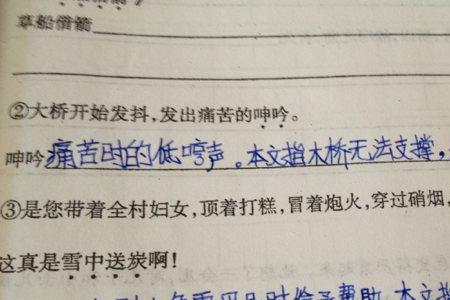 草船借箭
②大桥开始发抖,发出痛苦的呻吟。
呻吟 痛苦时的低哼声。本文指大桥无法支撑,
③是您带着全村妇女,顶着打糕,冒着炮火,穿过硝烟,
这真是雪中送炭啊!
帮助。本文